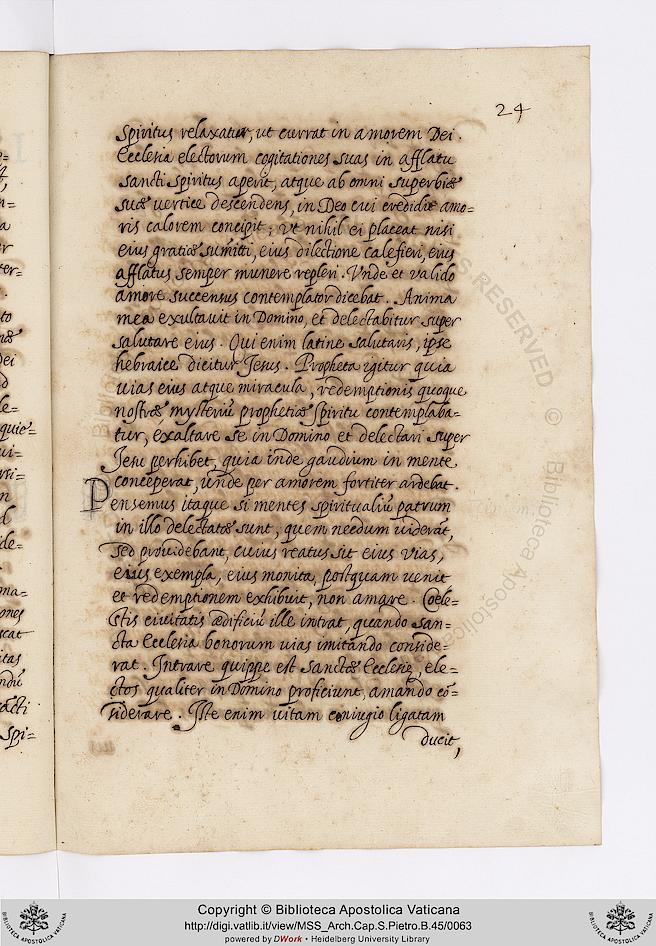 24
spiritus relaxatur, ut currat in amorem Dei.
Ecclesia electorum cogitationes suas in afflatu
sancti spiritus aperit, atque ab omni superbiæ
suæ vertice descendens, in Deo cui credidit amo=
ris calorem concipit; ut nihil ei placeat nisi
eius gratiæ sumitti, eius dilectione calefieri, eius
afflatus semper munere repleri. Vnde et valido
amore succensus contemplator dicebat. Anima
mea exultauit in Domino, et delectabitur super
salutare eius. Qui enim latine salutaris, ipse
hebraice dicitur Jesus. Propheta igitur quia
uias eius atque miracula, redemptionis quoque
nostræ, mysteriũ prophetiæ spiritu contemplaba=
tur, exaltare se in Domino et delectari super
Jesu perhibet, quia inde gaudium in mente
conceperat, unde per amorem fortiter ardebat.
Pensemus itaque si mentes spiritualiũ patrum
in illo delectatæ sunt, quem necdum uiderãt,
sed prouidebant, cuius reatus sit eius vias,
eius exempla, eius monita, postquam uenit
et redemptionem exhibuit, non amare. Coele=
stis ciuitatis ædificiũ ille intrat, quando san=
cta Ecclesia bonorum uias imitando conside=
rat. Intrare quippe est sanctæ Ecclesię, ele=
ctos qualiter in Domino proficiunt, amando cõ=
siderare. Iste enim uitam coniugio ligatam
ducit,
Copyright © Biblioteca Apostolica Vaticana
http://digi.vatlib.it/view/MSS_Arch.Cap.S.Pietro.B.45/0063
powered by DWork • Heidelberg University Library